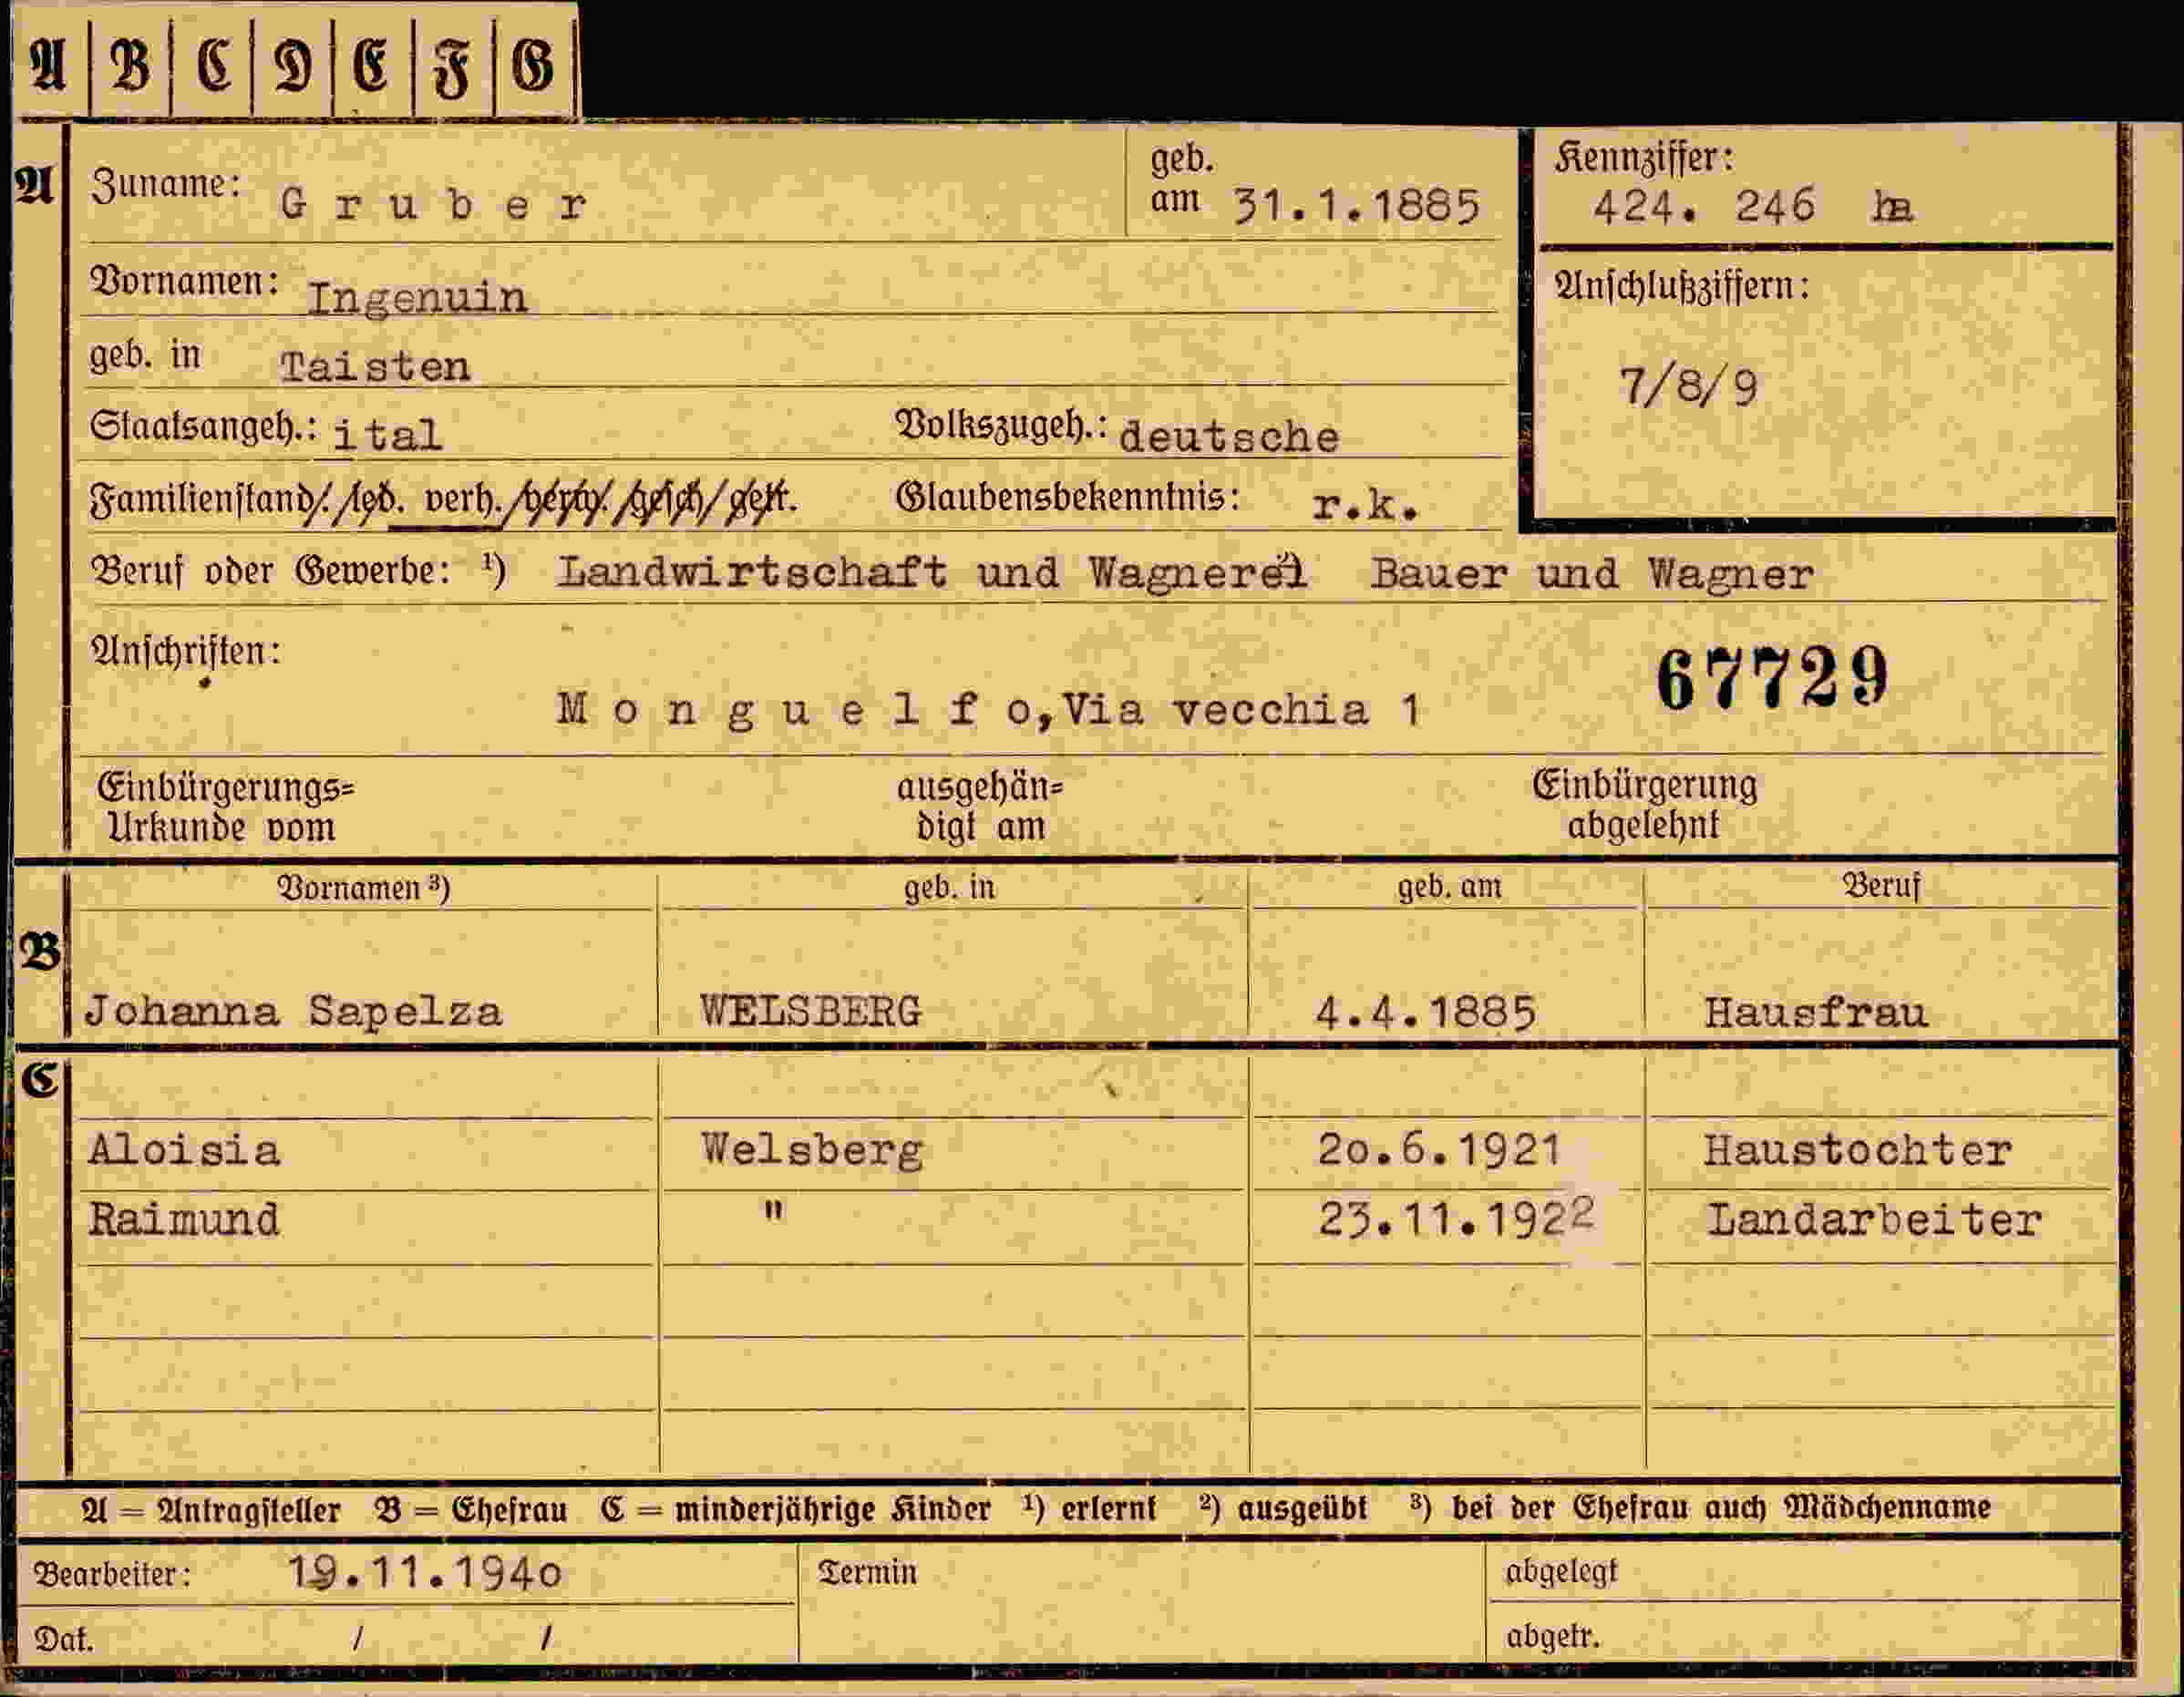 A B C D E F G
A Zuname: Gruber geb. am 31.1.1885 Kennziffer: 424. 246
Vornamen: Ingenuin Anschlußziffern:
geb. in Taisten 7/8/9
Staatsangeh.: ital Volkszugeh.: deutsche
Familienstand: led. verh. verw. gesch. getr. Glaubensbekenntnis: r.k.
Beruf oder Gewerbe: ¹) Landwirtschaft und Wagnerei Bauer und Wagner
Anschriften: 67729
Monguelfo, Via vecchia 1
Einbürgerungs= ausgehän= Einbürgerung
Urkunde vom digt am abgelehnt
Vornamen ³) geb. in geb. am Beruf
B
Johanna Sapelza WELSBERG 4.4.1885 Hausfrau
C
Aloisia Welsberg 2o.6.1921 Haustochter
Raimund " 23.11.1922 Landarbeiter
A = Antragsteller B = Ehefrau C = minderjährige Kinder ¹) erlernt ²) ausgeübt ³) bei der Ehefrau auch Mädchenname
Bearbeiter: 19.11.194o Termin abgelegt
Dat. / / abgetr.